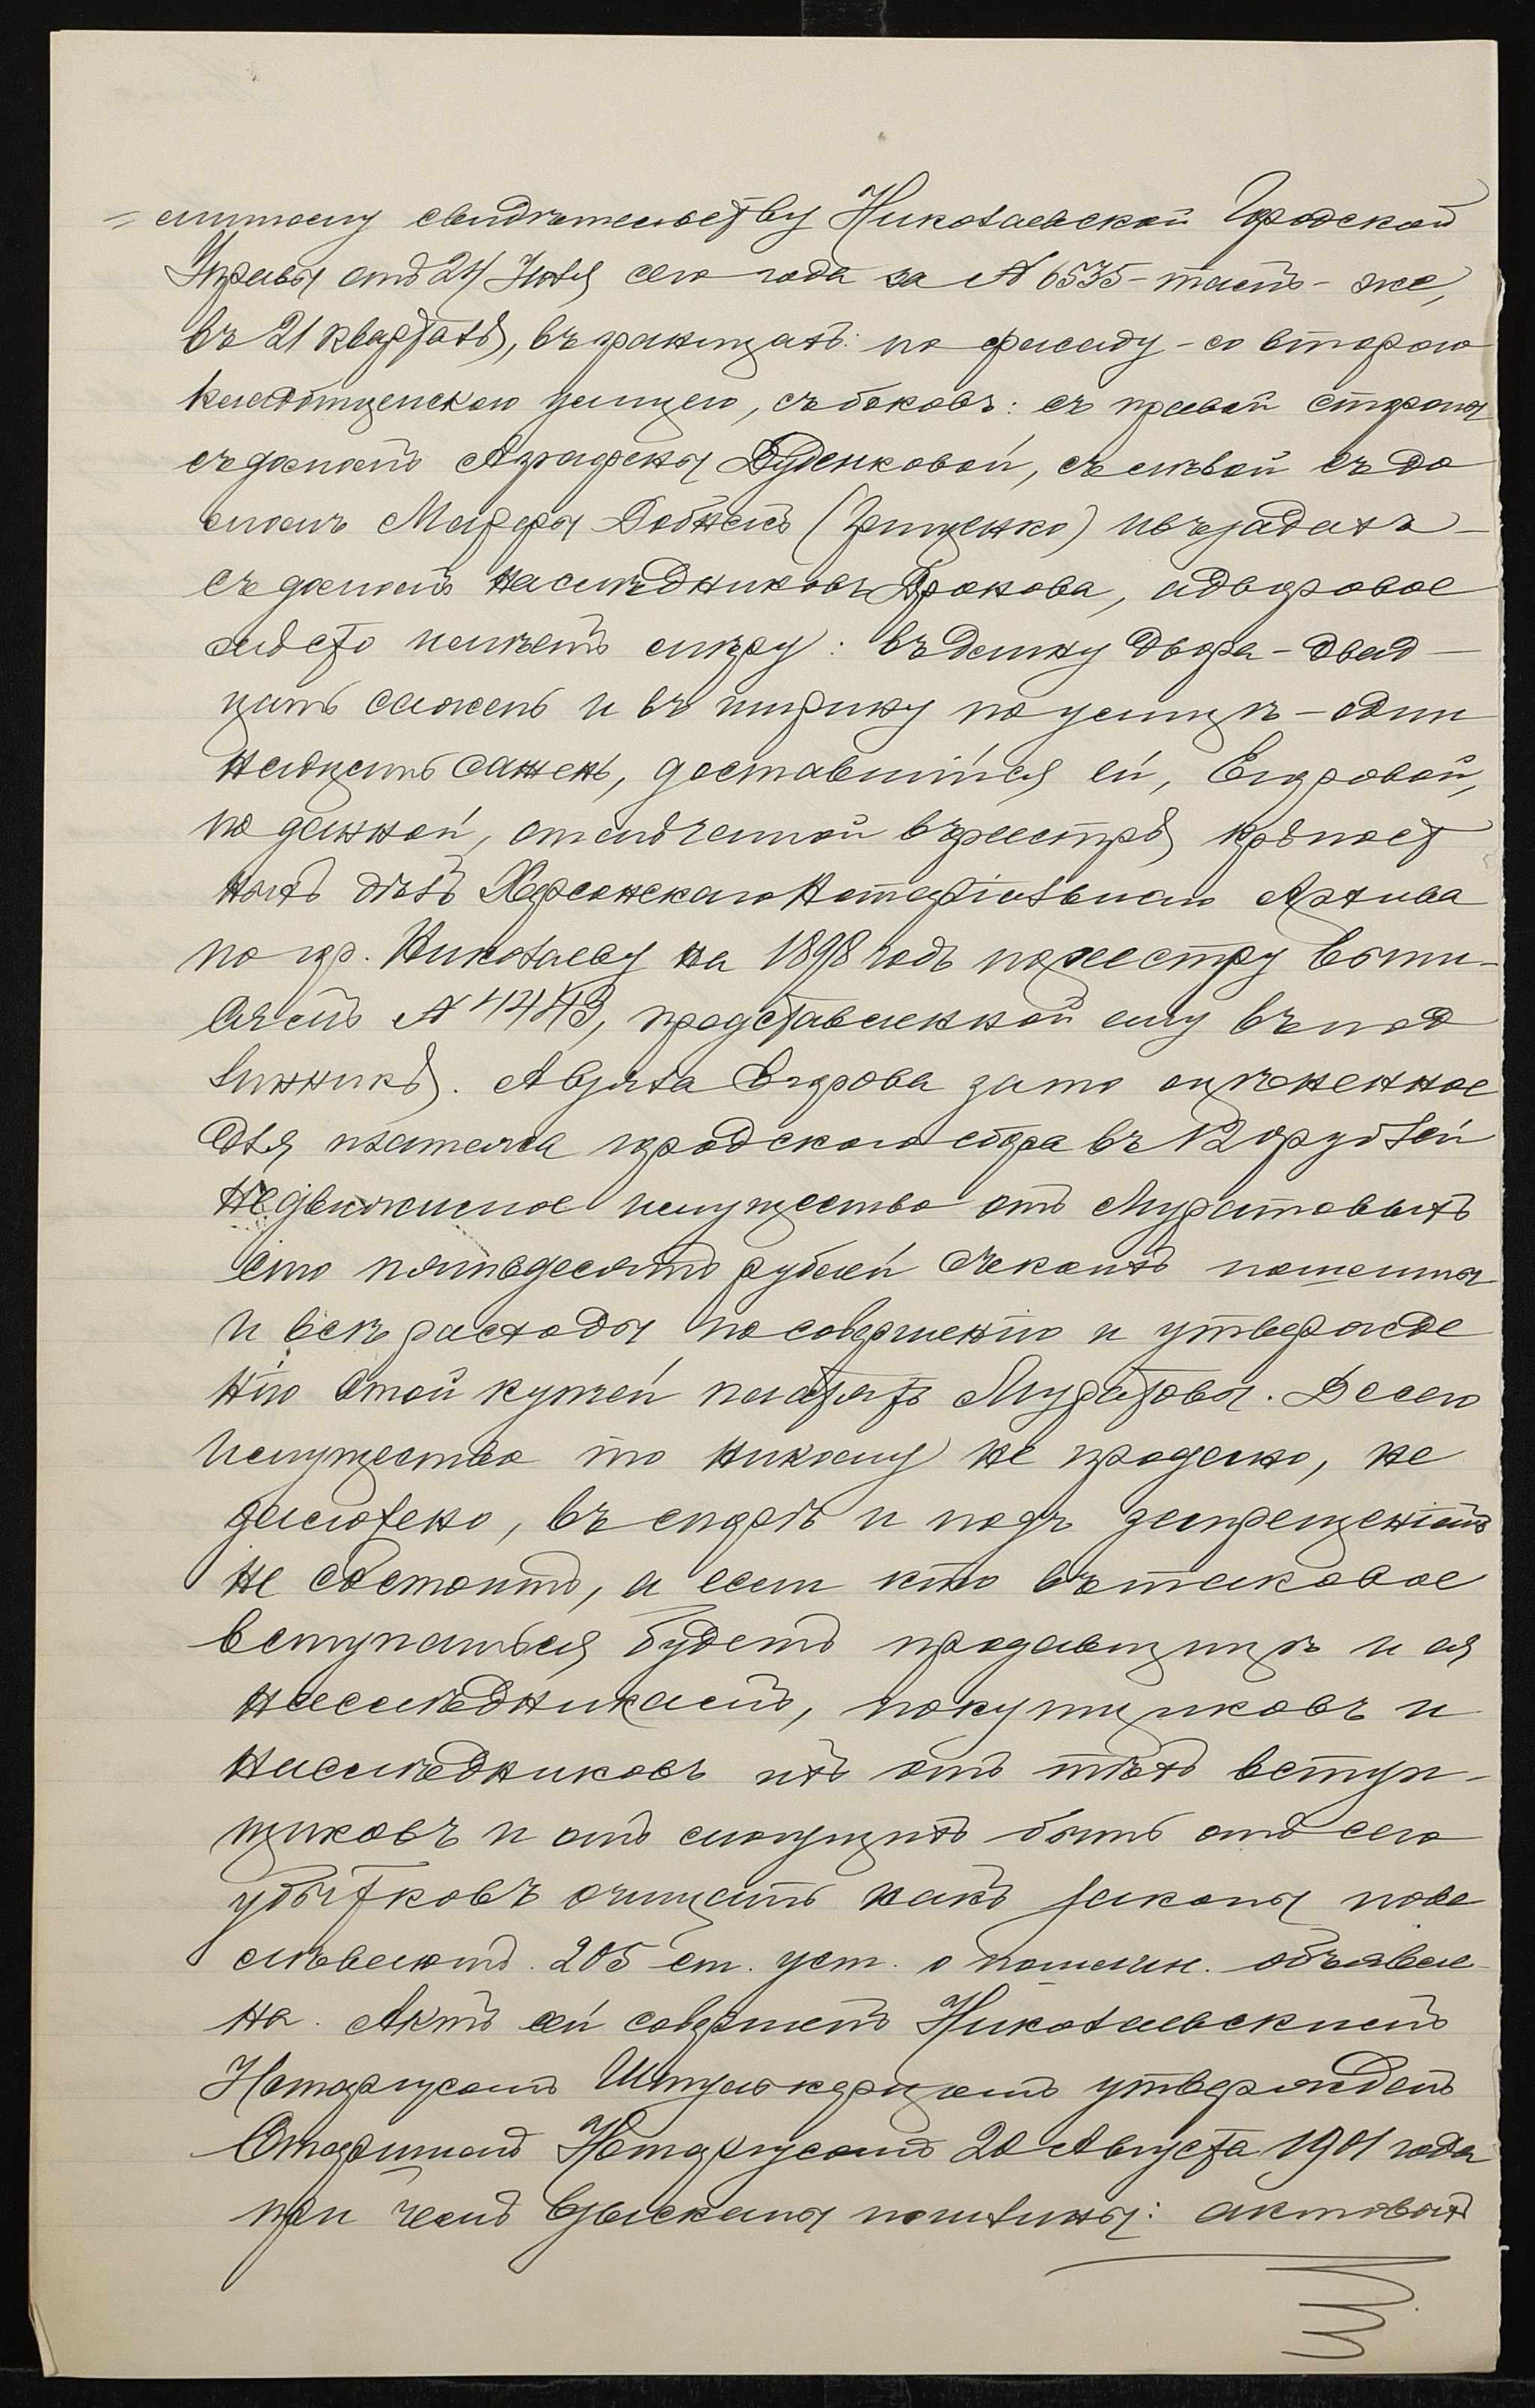 =епному свидѣтельству Николаевской Городской
Управы отъ 24 Іюля сего года за № 6535 – тамъ-же,
въ 21 кварталѣ, въ границахъ: по фасаду – со второю
Кладбищенскою улицею, съ боковъ: съ правой стороны
съ домомъ Аграфены Буденковой, съ лѣвой съ до
момъ Марфы Добжекъ (Грищенко) и въ задахъ –
съ домомъ наслѣдниковъ Бракова, а дворовое
мѣсто имѣетъ мѣру: въ длину двора – двад –
цать сажень и въ ширину по улицѣ – один
надцать сажень, доставшійся ей, Егоровой,
по данной, отмѣченной въ реестрѣ крѣпост
ныхъ дѣлъ Херсонскаго Нотаріальнаго Архива
по гор. Николаеву на 1898 годъ по реестру выпи-
сямъ № 4443, представленной ему въ под
линникѣ. А взяла Егорова за то оцѣненное
для платежа городского сбора въ 120 рублей
недвижимое имущество отъ Муратовыхъ
сто пятьдесятъ рублей съ коихъ пошлины
и всѣ расходы по совершенію и утвержде
нію этой купчей платятъ Муратовы. До сего
имущество то никому не продано, не
заложено, въ спорѣ и подъ запрещеніемъ
не состоитъ, а если кто въ таковое
вступаться будетъ продавщицѣ и ея
наслѣдникамъ, покупщиковъ и
наслѣдниковъ ихъ отъ тѣхъ вступ-
щиковъ и отъ могущихъ быть отъ сего
убытковъ очищать какъ законы пове
лѣваютъ. 205 ст. уст. о пошлин. объявле-
на. Актъ сей совершенъ Николаевскимъ
Нотаріусомъ утвержденъ
Старшимъ Нотаріусомъ 20 Августа 1901 года
при чемъ взысканы пошлины: актовыхъ